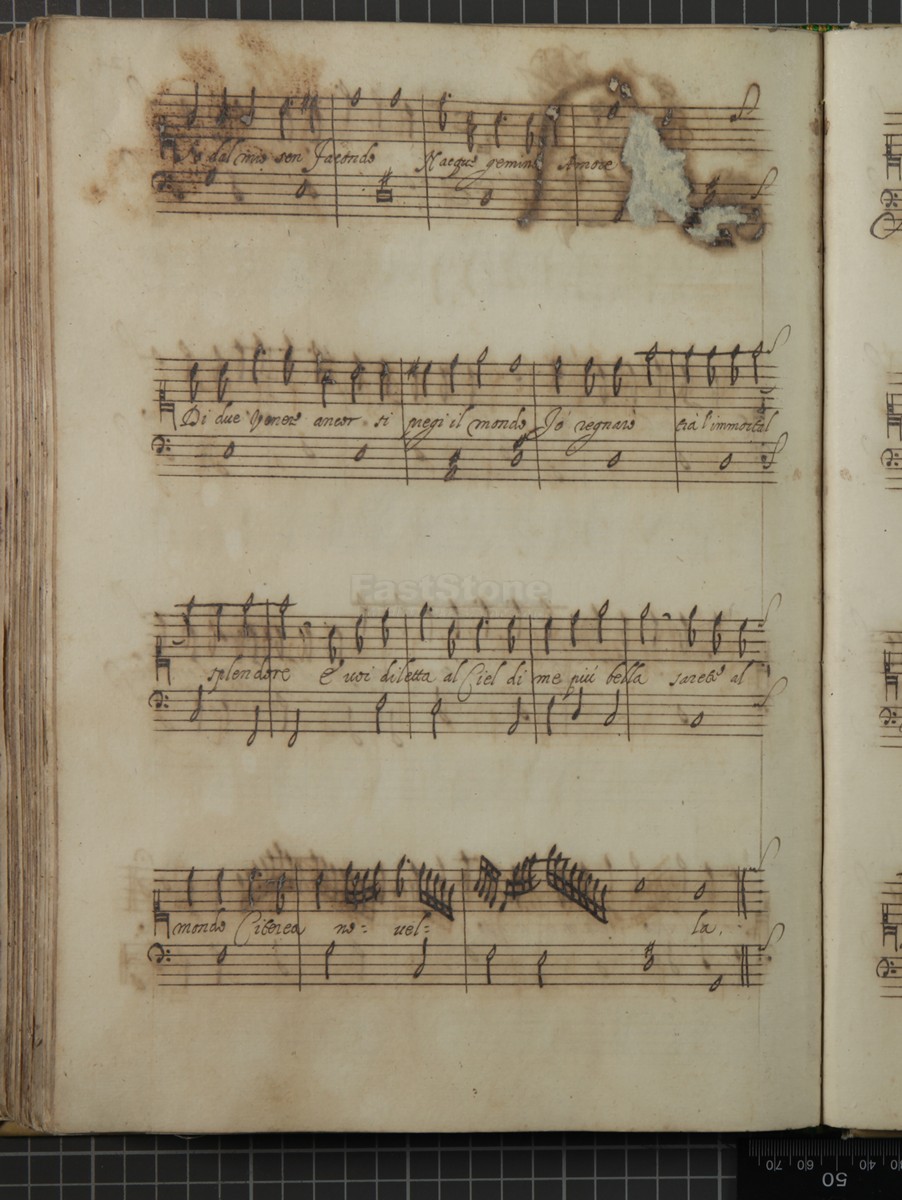 dal mio sen facondo Nacque gemino Amore
Di due Venere ancor si pregi il mondo Io regnarò trà l'immortal
FastStone
splendore E voi diletta al Ciel di me più bella sarete al
mondo Citerea no= uel= la.
70 60 50 40